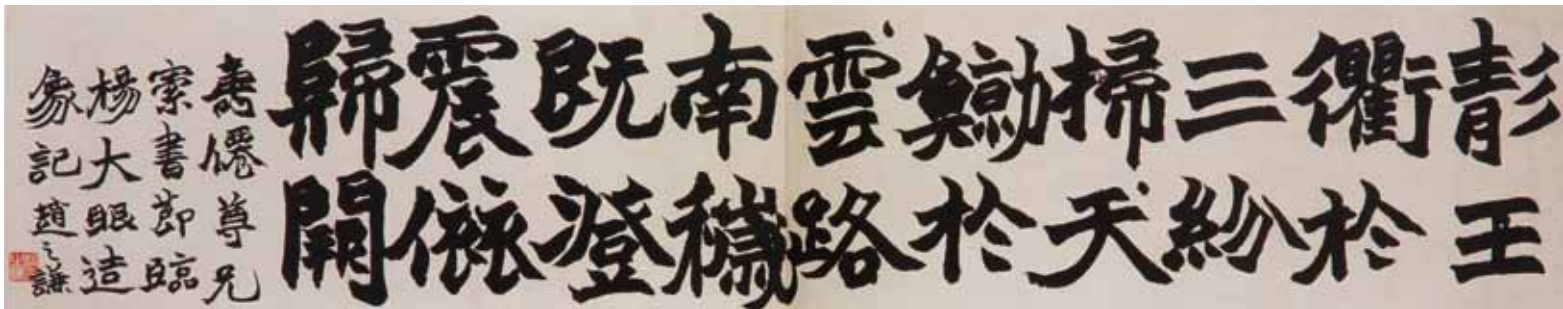 靜王
衢於
三紛
掃天
鯨於
雲路
南穢
既澄
震旅
歸闕
壽僊尊兄
索書節臨
楊大眼造
象記趙之謙